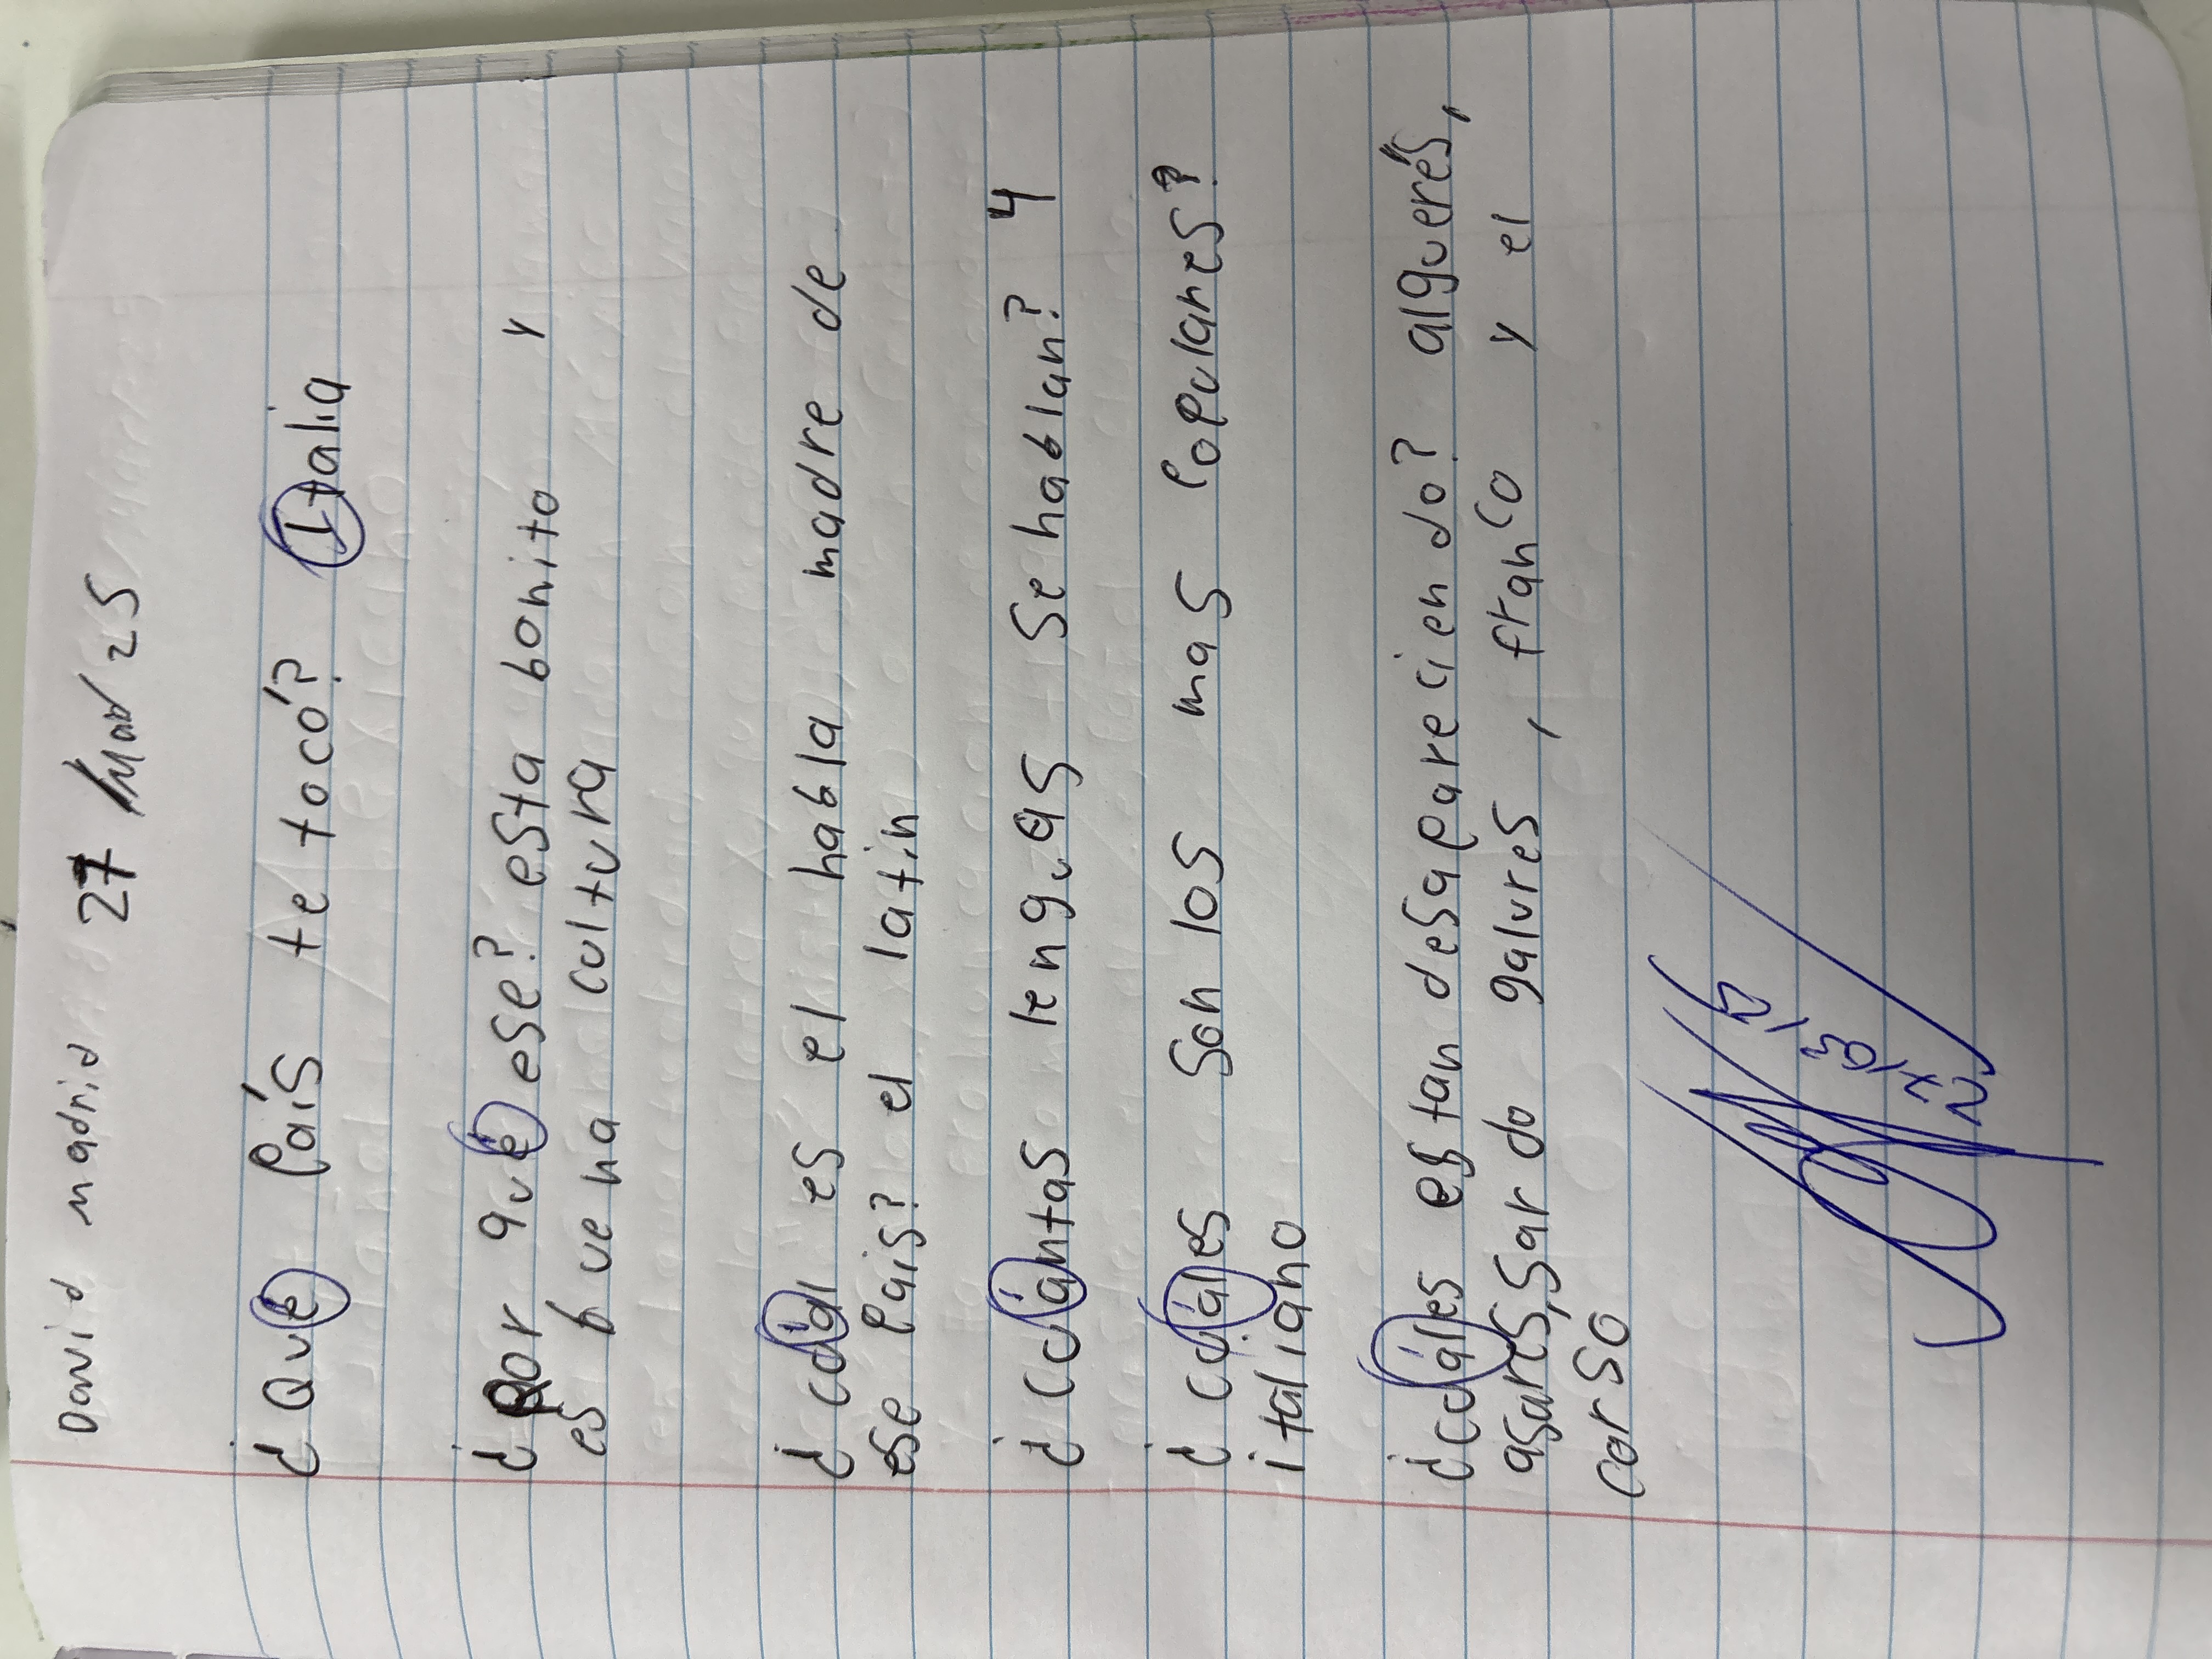 David madrid 27 / Mar 25
¿Qué País te tocó? Italia
¿Por qué ese? esta bonito y
es buena cultura
¿cuál es el habla madre de
ese País? el latin
¿cuántas lenguas se hablan? 4
¿cuáles son los mas Populares?
italiano
¿cuáles estan desapareciendo? alguerés,
asares, sardo galures, franco y el
corso